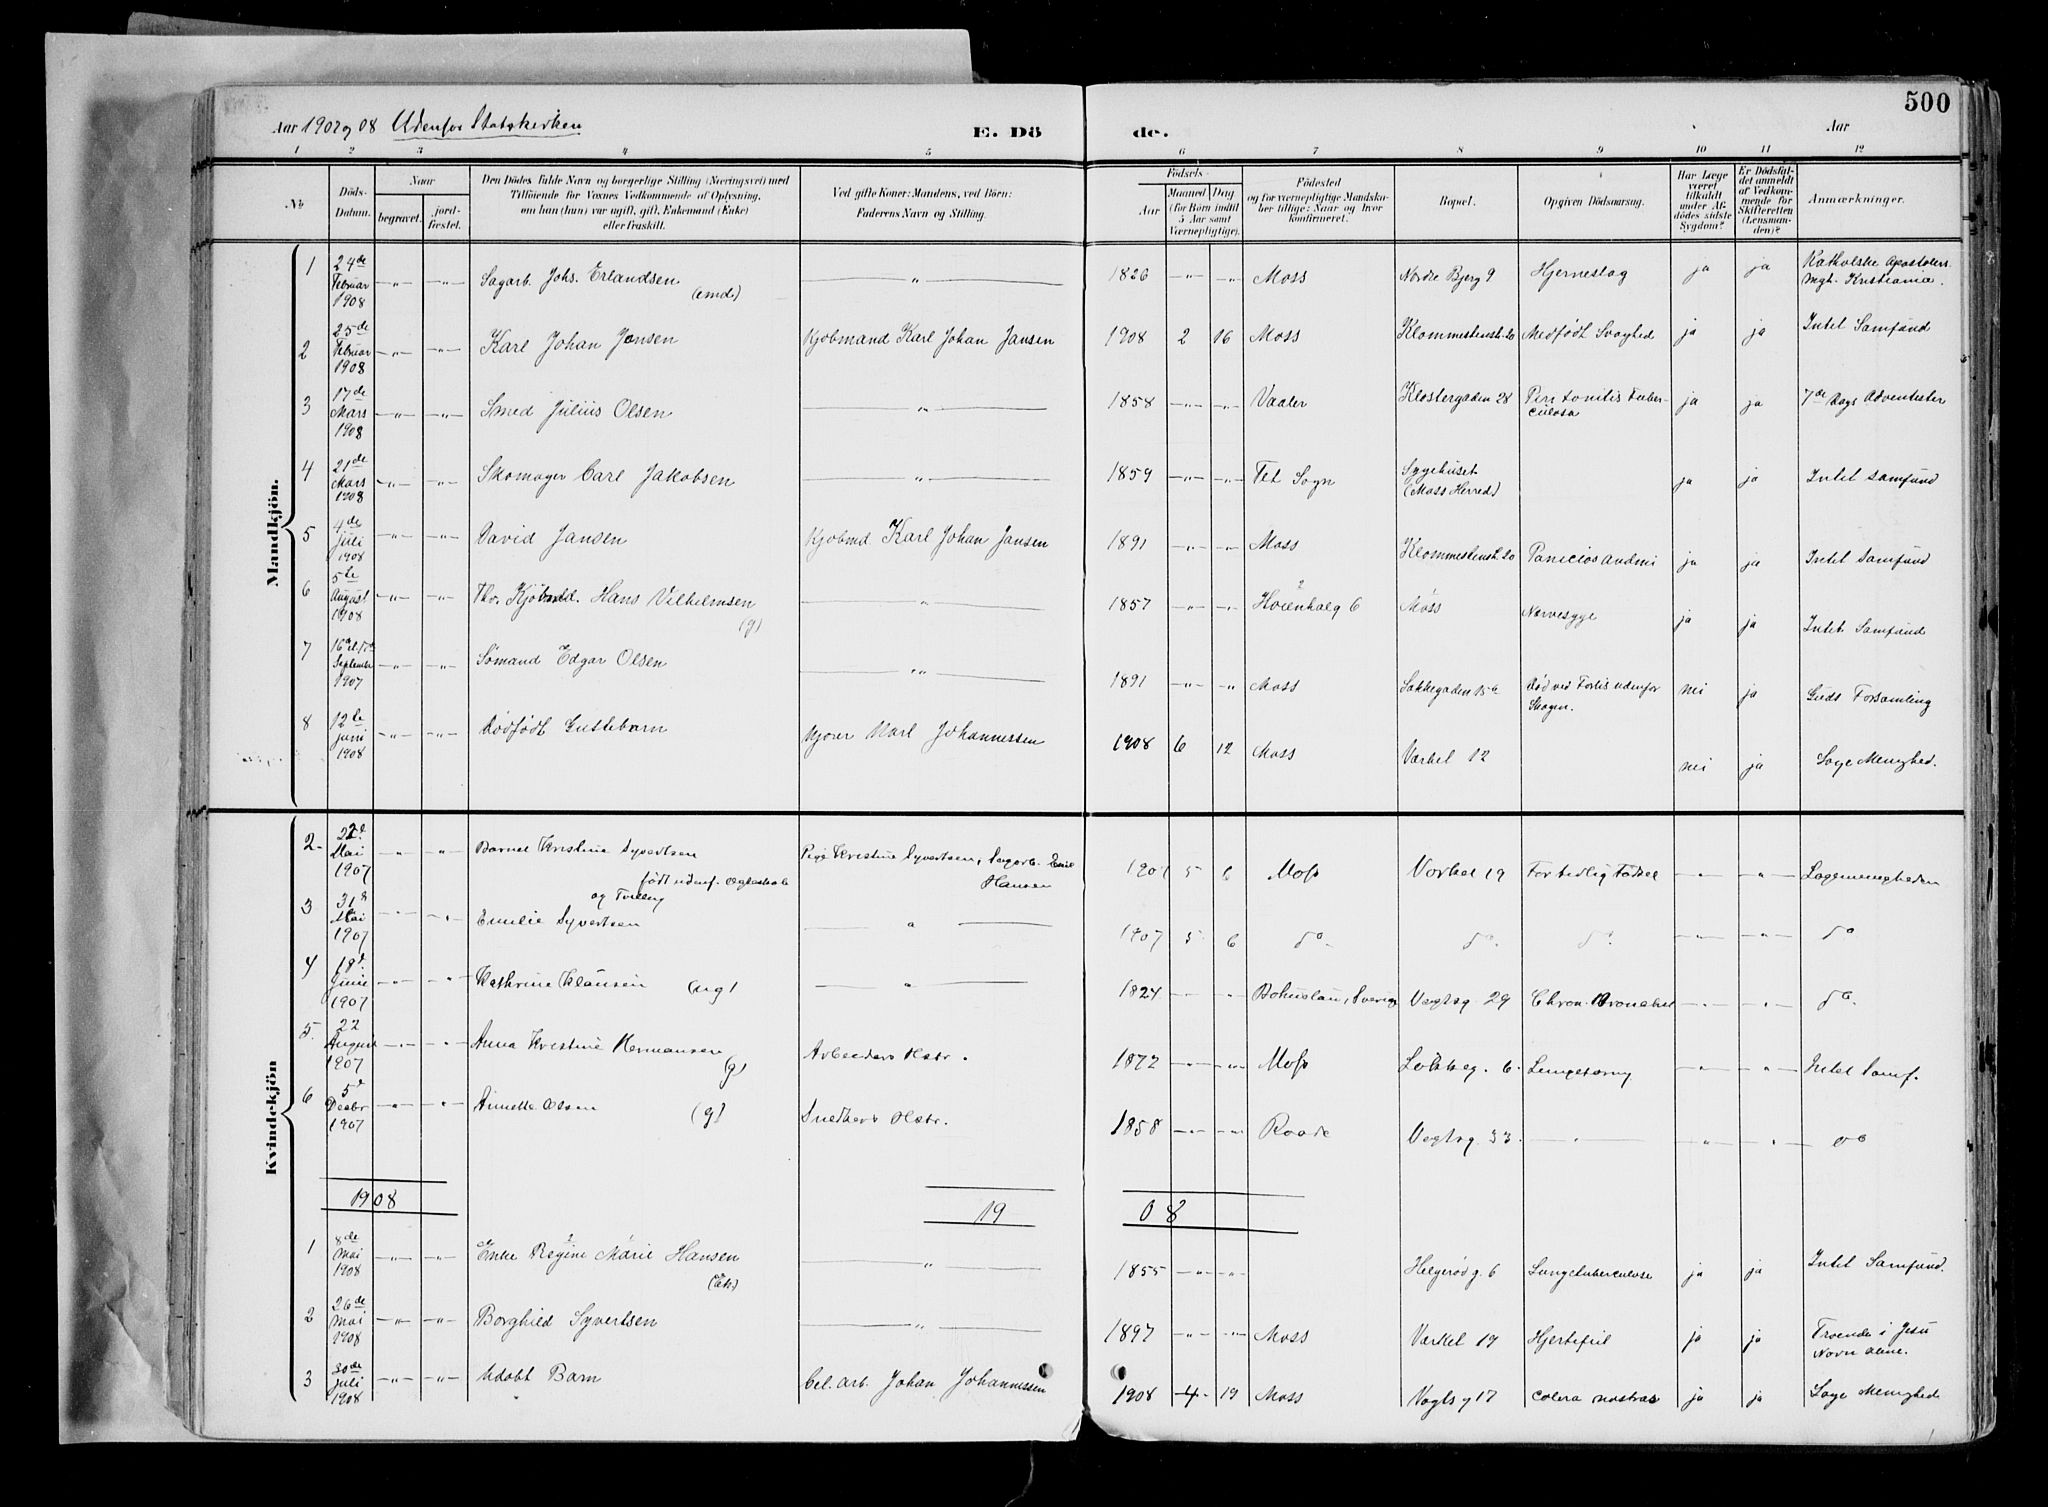 500
Aar 1907 og 08 Udenfor Statskirken
E. Dö de.
Aar
1 2 3 4 5 6 7 8 9 10 11 12
№
Döds-Datum.
Naar begravet. jordfæstet.
Den Dödes fulde Navn og borgerlige Stilling (Næringsvei) med Tilföiende for Voxnes Vedkommende af Oplysning, om han (hun) var ugift, gift, Enkemand (Enke) eller fraskilt.
Ved gifte Koner: Mandens, ved Börn: Faderens Navn og Stilling.
Födsels- Aar Maaned Dag (for Börn indtil 5 Aar samt Værnepligtige).
Födested og for værnepligtige Mandskaber tillige: Naar og hvor konfirmeret.
Bopæl.
Opgiven Dödsaarsag.
Har Læge været tilkaldt under Afdödes sidste Sygdom?
Er Dödsfaldet anmeldt af Vedkommende for Skifteretten (Lensmanden)?
Anmærkninger.
Mandkjön.
1 24de Februar 1908 -"- -"- Sagarb. Johs. Erlandsen (emd) " 1826 -"- -"- Moss Nordre Bjerg 9 Hjerneslag ja ja Katholske Apostolers Mgh. Kristiania.
2 25de Februar 1908 -"- -"- Karl Johan Jansen Kjøbmand Karl Johan Jansen 1908 2 16 Moss Klommestenst. 20 Medfødt Svaghed ja ja Intet Samfund
3 17de Mars 1908 -"- -"- Smed Julius Olsen " 1858 -"- -"- Vaaler Klostergaden 28 Peritonitis Tuberculosa ja ja 7de Dags Adventister
4 21de Mars 1908 -"- -"- Skomager Carl Jakobsen " 1859 -"- -"- Fet Sogn Sygehuset (Moss Herred) ja ja Intet Samfund
5 4de Juli 1908 -"- -"- David Jansen Kjøbmd. Karl Johan Jansen 1891 -"- -"- Moss Klommestenst. 20 ja ja Intet Samfund
6 5te August 1908 -"- -"- Fhv. Kjøbmd. Hans Vilhelmsen (g) " 1857 -"- -"- Moss Nervesyge ja ja Intet Samfund
7 September 1907 -"- -"- Sømand Edgar Olsen " 1891 -"- " Moss Død ved Forlis udenfor Skagen. nei ja Guds Forsamling
8 12te Juni 1908 -"- -"- Dødfødt Guttebarn Kjører Karl Johannessen 1908 6 12 Moss Værket 12 nei ja Lage Menighed.
Kvindekjön
2. 22d. Mai 1907 " " Barnet Kristine Syvertsen født udenf. Ægteskab og Tvilling Pige Kristine Syvertsen, Sagarb. Emil Hansen 1907 5 6 Moss Værket 19 For tidlig Fødsel " " Lagemenigheden
3 31d Mai 1907 " " Emilie Syvertsen " 1907 5 6 do. do. do. " " do
4 18d. Juni 1907 " " Kathrine Klausen (ug) " 1824 " " Bohuslän, Sverige Vogtsg 29 Chron. Bronchit " " do.
5. 22 August 1907 " " Anna Kristine Hermansen (g) Arbeiders Hstr. 1872 " " Moss 6. " " Intet Samf.
6 5d Decbr 1907 " " Annette Olsen (g) Snedkers Hstr. 1858 " " Raade Vogtsg. 33 " " " do
1908 1908
1 8de Mai 1908 -"- -"- Enke Regine Marie Hansen (Ek) " 1855 -"- -"- Helgerødg. 6 Lungetuberculose ja ja Intet Samfund.
2 26de Mai 1908 -"- -"- Borghild Syvertsen " 1897 -"- -"- Moss Værket 19 Hjertefeil ja ja Troende i Jesu Navn alene.
3 30de Juli 1908 -"- -"- Udøbt Barn Cel. arb. Johan Johannessen 1908 4 19 Moss Vogtsg 17 Colera nostras ja ja Lage Menighed